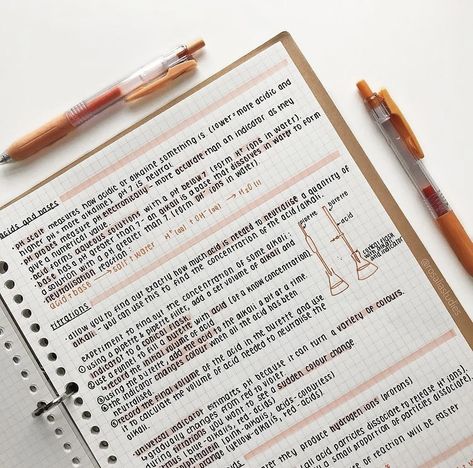 acids and bases
- pH scale measures how acidic or alkaline something is (lower = more acidic and
higher = more alkaline). pH 7 is neutral
- pH probes measure pH electronically - more accurate than an indicator as they
give a numerical value
- acids form aqueous solutions with a pH below 7 (form H⁺ ions in water).
- a base has a pH greater than 7 - an alkali is a base that dissolves in water to form
a solution with a pH greater than 7. (form OH⁻ ions in water).
- neutralisation reaction:
acid + base → salt + water H⁺(aq) + OH⁻(aq) → H₂O (l)
titrations
- allow you to find out exactly how much acid is needed to neutralise a quantity of
alkali - you can use this to find the concentration of the acid/alkali.
experiment to find out the concentration of some alkali:
① using a pipette & pipette filler, add a set volume of alkali and
indicator to a conical flask.
② use a funnel to fill a burette with acid (of a know concentration)
- record the initial volume of acid
③ using the burette, add the acid to the alkali a bit at a time
④ the indicator changes colour when all the acid has been
neutralised
⑤ record the final volume of the acid in the burette and use
it to calculate the volume of acid needed to neutralise the
alkali.
pipette
burette
acid
alkali
and indicator
- universal indicator estimates pH because it can turn a variety of colours.
- gradually changes from red to violet
- during titrations you want to see a sudden colour change
- litmus (blue-alkalis, red-acids)
- phenolphthalein (pink-alkalis, acids-colourless)
(yellow-alkalis, red-acids)
they produce hydrogen ions (protons)
acid particles dissociate to release H⁺ ions)
a small proportion of particles dissociate,
of reaction will be faster
@rosalinstudies